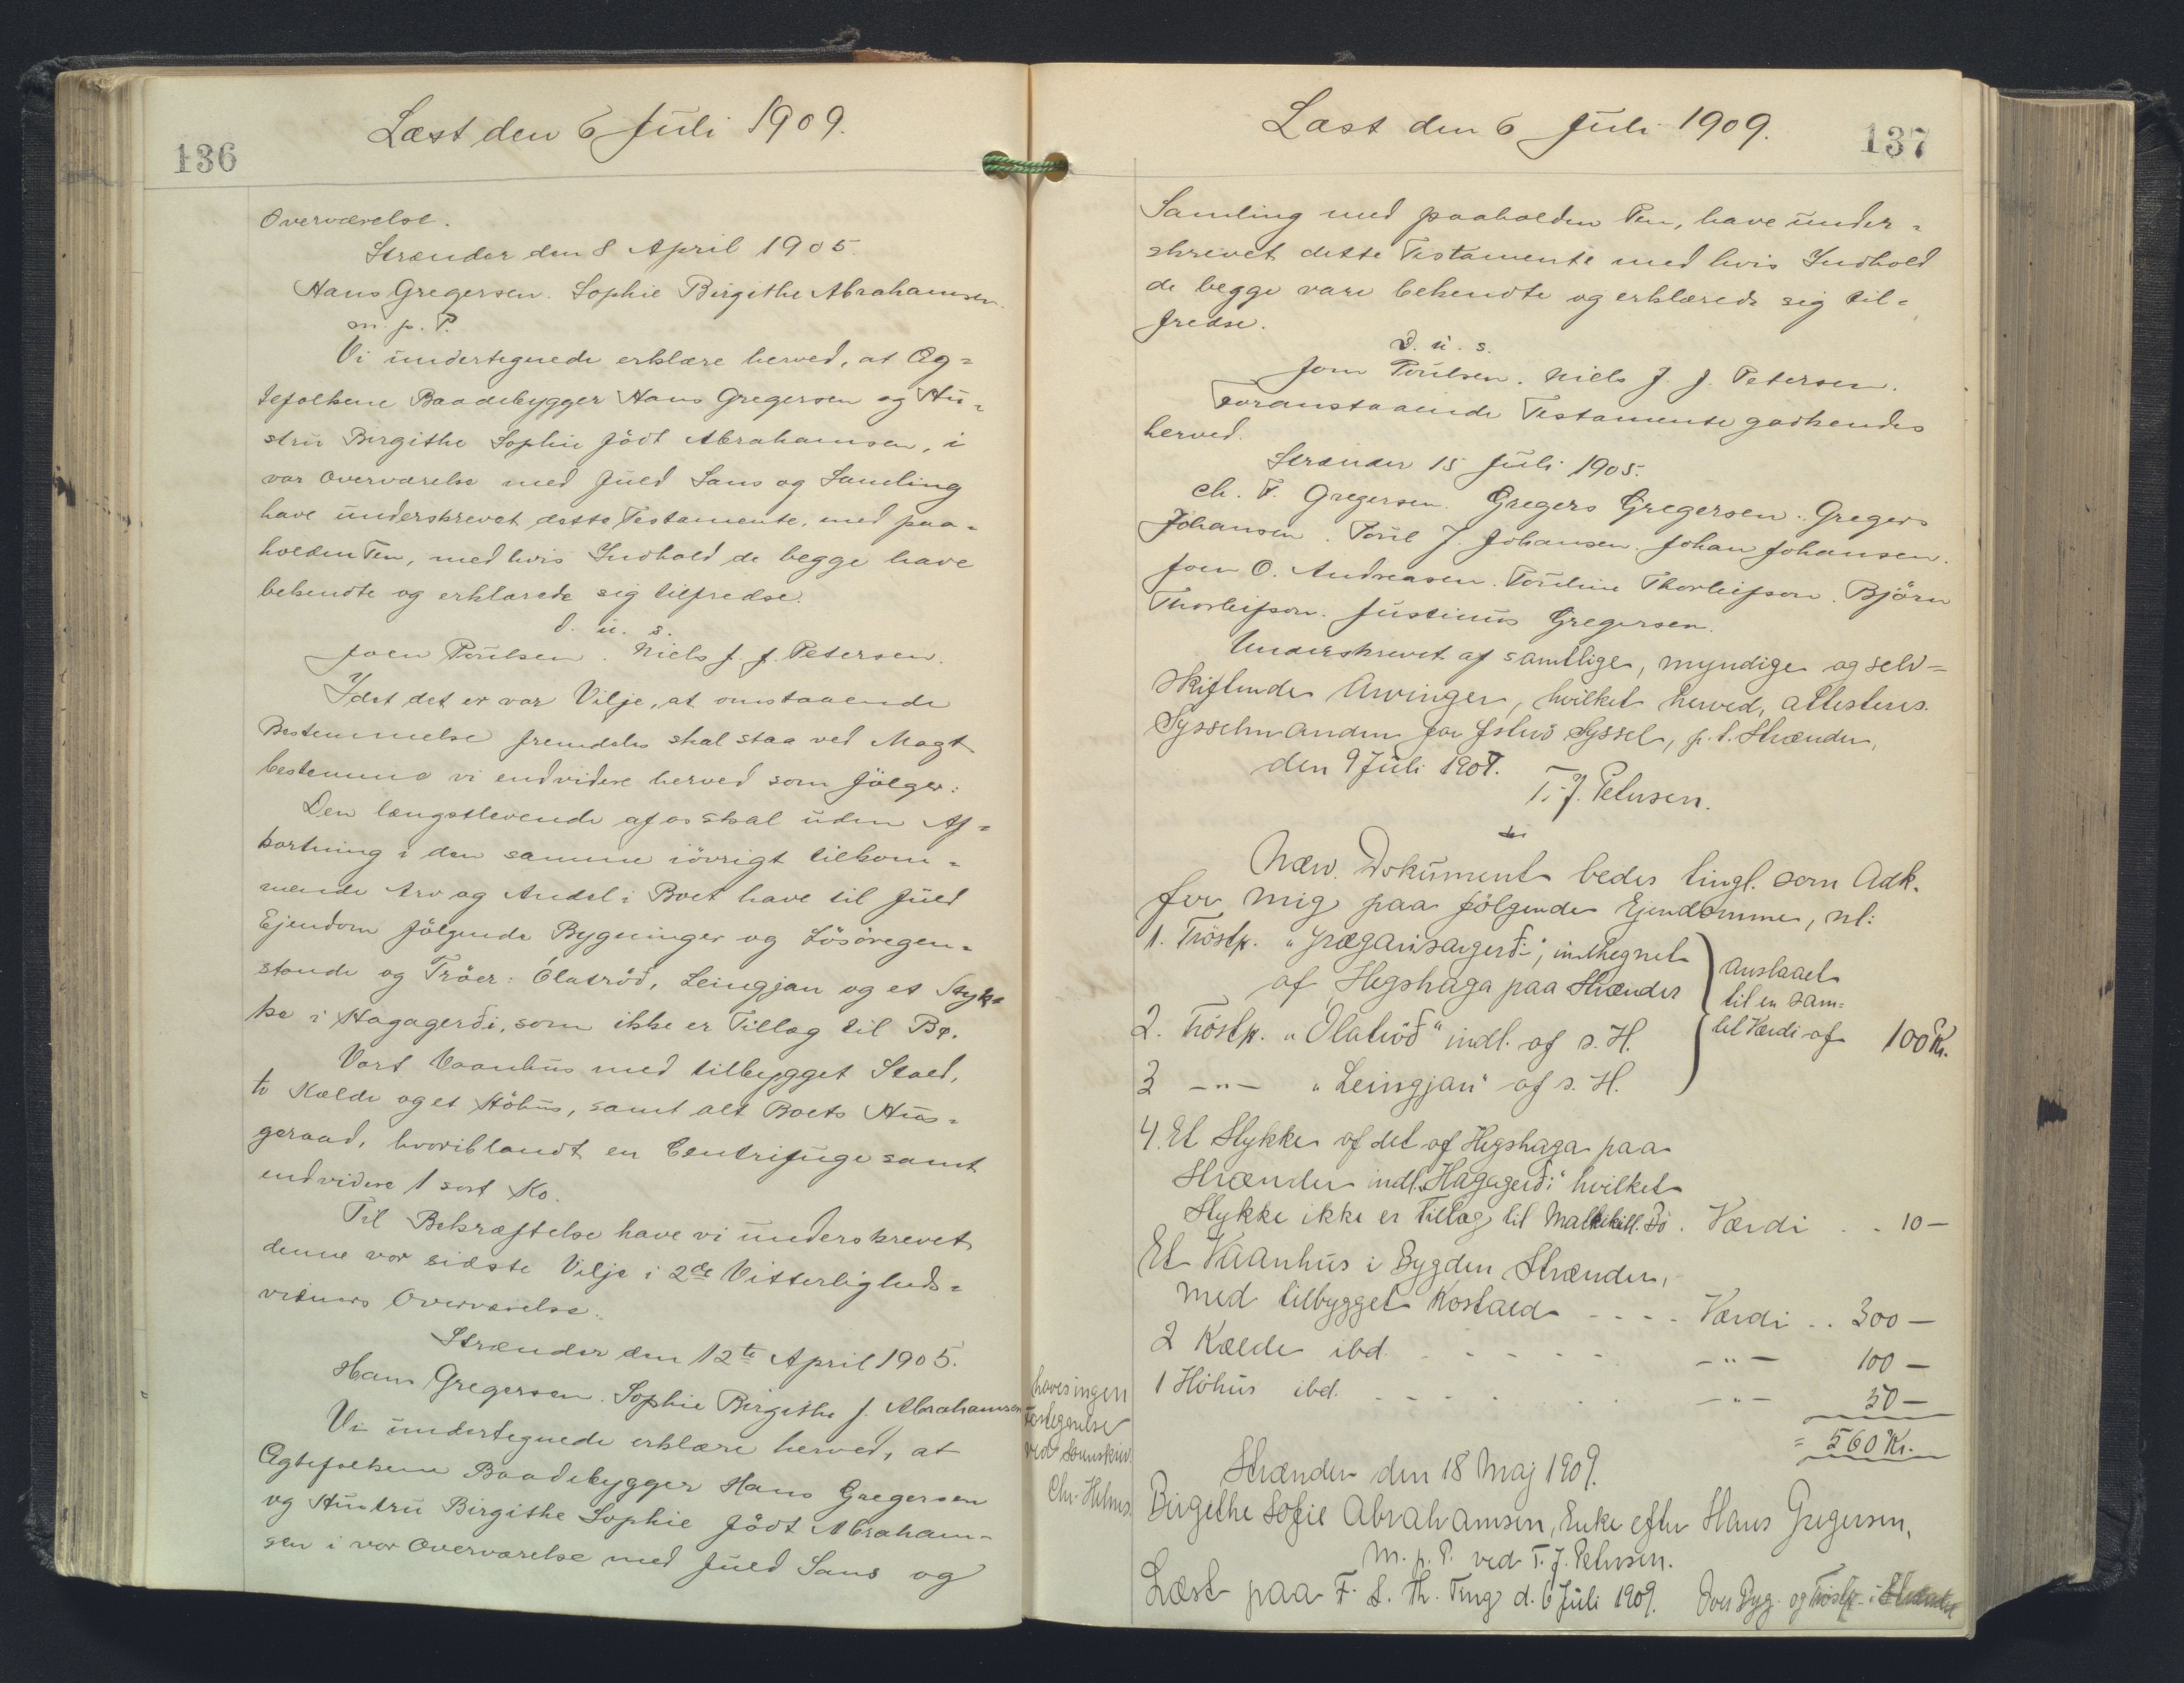 Læst den 6 Juli 1909.
136
Overværelse.
Strænder den 8 April 1905.
Hans Gregersen. Sophie Birgithe Abrahamsen.
m. p. P.
Vi undertegnede erklære herved, at Æg=
tefolkene Baadebygger Hans Gregersen og Hu=
stru Birgithe Sophie född Abrahamsen, i
vor Overværelse med fuld Sans og Samling
have underskrevet dette Testamente, med paa=
holden Pen, med hvis Indhold de begge have
bekendte og erklærede sig tilfredse.
d. u. s.
Joen Poulsen. Niels J. J. Petersen.
Idet det er vor Vilje, at omstaaende
Bestemmelse fremdeles skal staa ved Magt
bestemme vi endvidere herved som fölger:
Den længstlevende af os skal uden Af=
kortning i den samme iövrigt tilkom=
mende Arv og Andel i Boet have til fuld
Ejendom fölgende Bygninger og Lösöregen=
stande og Tröer: Ólatröð, Leingjan og et Styk=
ke i Hagagerði, som ikke er Tillæg til Bø.
Vort Vaanhus med tilbygget Stald,
to Kælde og et Höhus, samt alt Boets Hus=
geraad, hvoriblandt en Centrifuge samt
endvidere 1 sort Ko.
Til Bekræftelse have vi underskrevet
denne vor sidste Vilje i 2de Vitterligheds=
vidners Overværelse.
Strænder den 12te April 1905.
Hans Gregersen. Sophie Birgithe f. Abrahamsen
Vi undertegnede erklære herved, at
Ægtefolkene Baadebygger Hans Gregersen
og Hustru Birgithe Sophie född Abraham=
sen i vor Overværelse med fuld Sans og
Læst den 6 Juli 1909.
137
Samling med paaholden Pen, have under=
skrevet dette Testamente med hvis Indhold
de begge vare bekendte og erklærede sig til=
fredse.
D. u. s.
Joen Poulsen. Niels J. J. Petersen.
Foranstaaende Testamente godkendes
herved.
Strænder 15 Juli 1905.
Ch. F. Gregersen. Gregers Gregersen. Gregers
Johansen. Poul J. Johansen. Johan Johansen.
Joen O. Andreasen. Pouline Thorleifson. Björn
Thorleifson. Justinus Gregersen.
Underskrevet af samtlige, myndige og selv=
skiftende Arvinger, hvilket herved, attesteres.
Sysselmanden for Østerö Syssel, p. t. Strænder,
den 9 Juli 1907.
T. J. Petersen.
Nærv. Dokument bedes tingl. som Adk.
for mig paa fölgende Ejendomme, nl:
1. Tröstp. indhegnet
af Hegshaga paa Strænder
2. Tröstp. "Olatröð" indl. af s. H.
3 -"- "Leingjan" af s. H.
Anslaaet
til en sam=
let Værdi af 100 Kr.
4. Et Stykke af det af Hegshaga paa
Strænder indl. "Hagagerði" hvilket
Stykke ikke er Tillæg til Bö. Værdi . . 10 —
Et Vaanhus i Bygden Strænder,
med tilbygget Kostald - - - - Værdi . . 300 —
2 Kælde ibd. - - - - - -"- 100 —
1 Höhus ibd. - - - - - -"- 50 —
= 560 Kr.
haves ingen
Fortegnelse
ved Sorenskriv.
Chr. Helms.
Strænder den 18 Maj 1909.
Birgethe Sofie Abrahamsen, Enke efter Hans Gregersen,
m. p. P. ved T. J. Petersen.
Læst paa F. S. Th. Ting d. 6 Juli 1909. Over Byg. og Tröstp. i Strænder